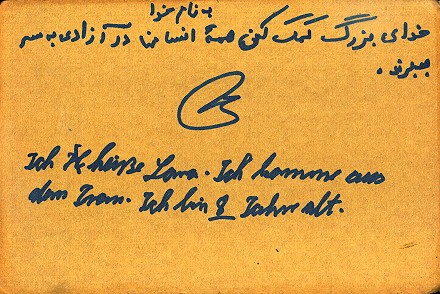 به نام خدا
خدای بزرگ کمک کن همهٔ انسانها در آزادی به سر
ببرند.
Ich heiße Lara. Ich komme aus
dem Iran. Ich bin 8 Jahre alt.